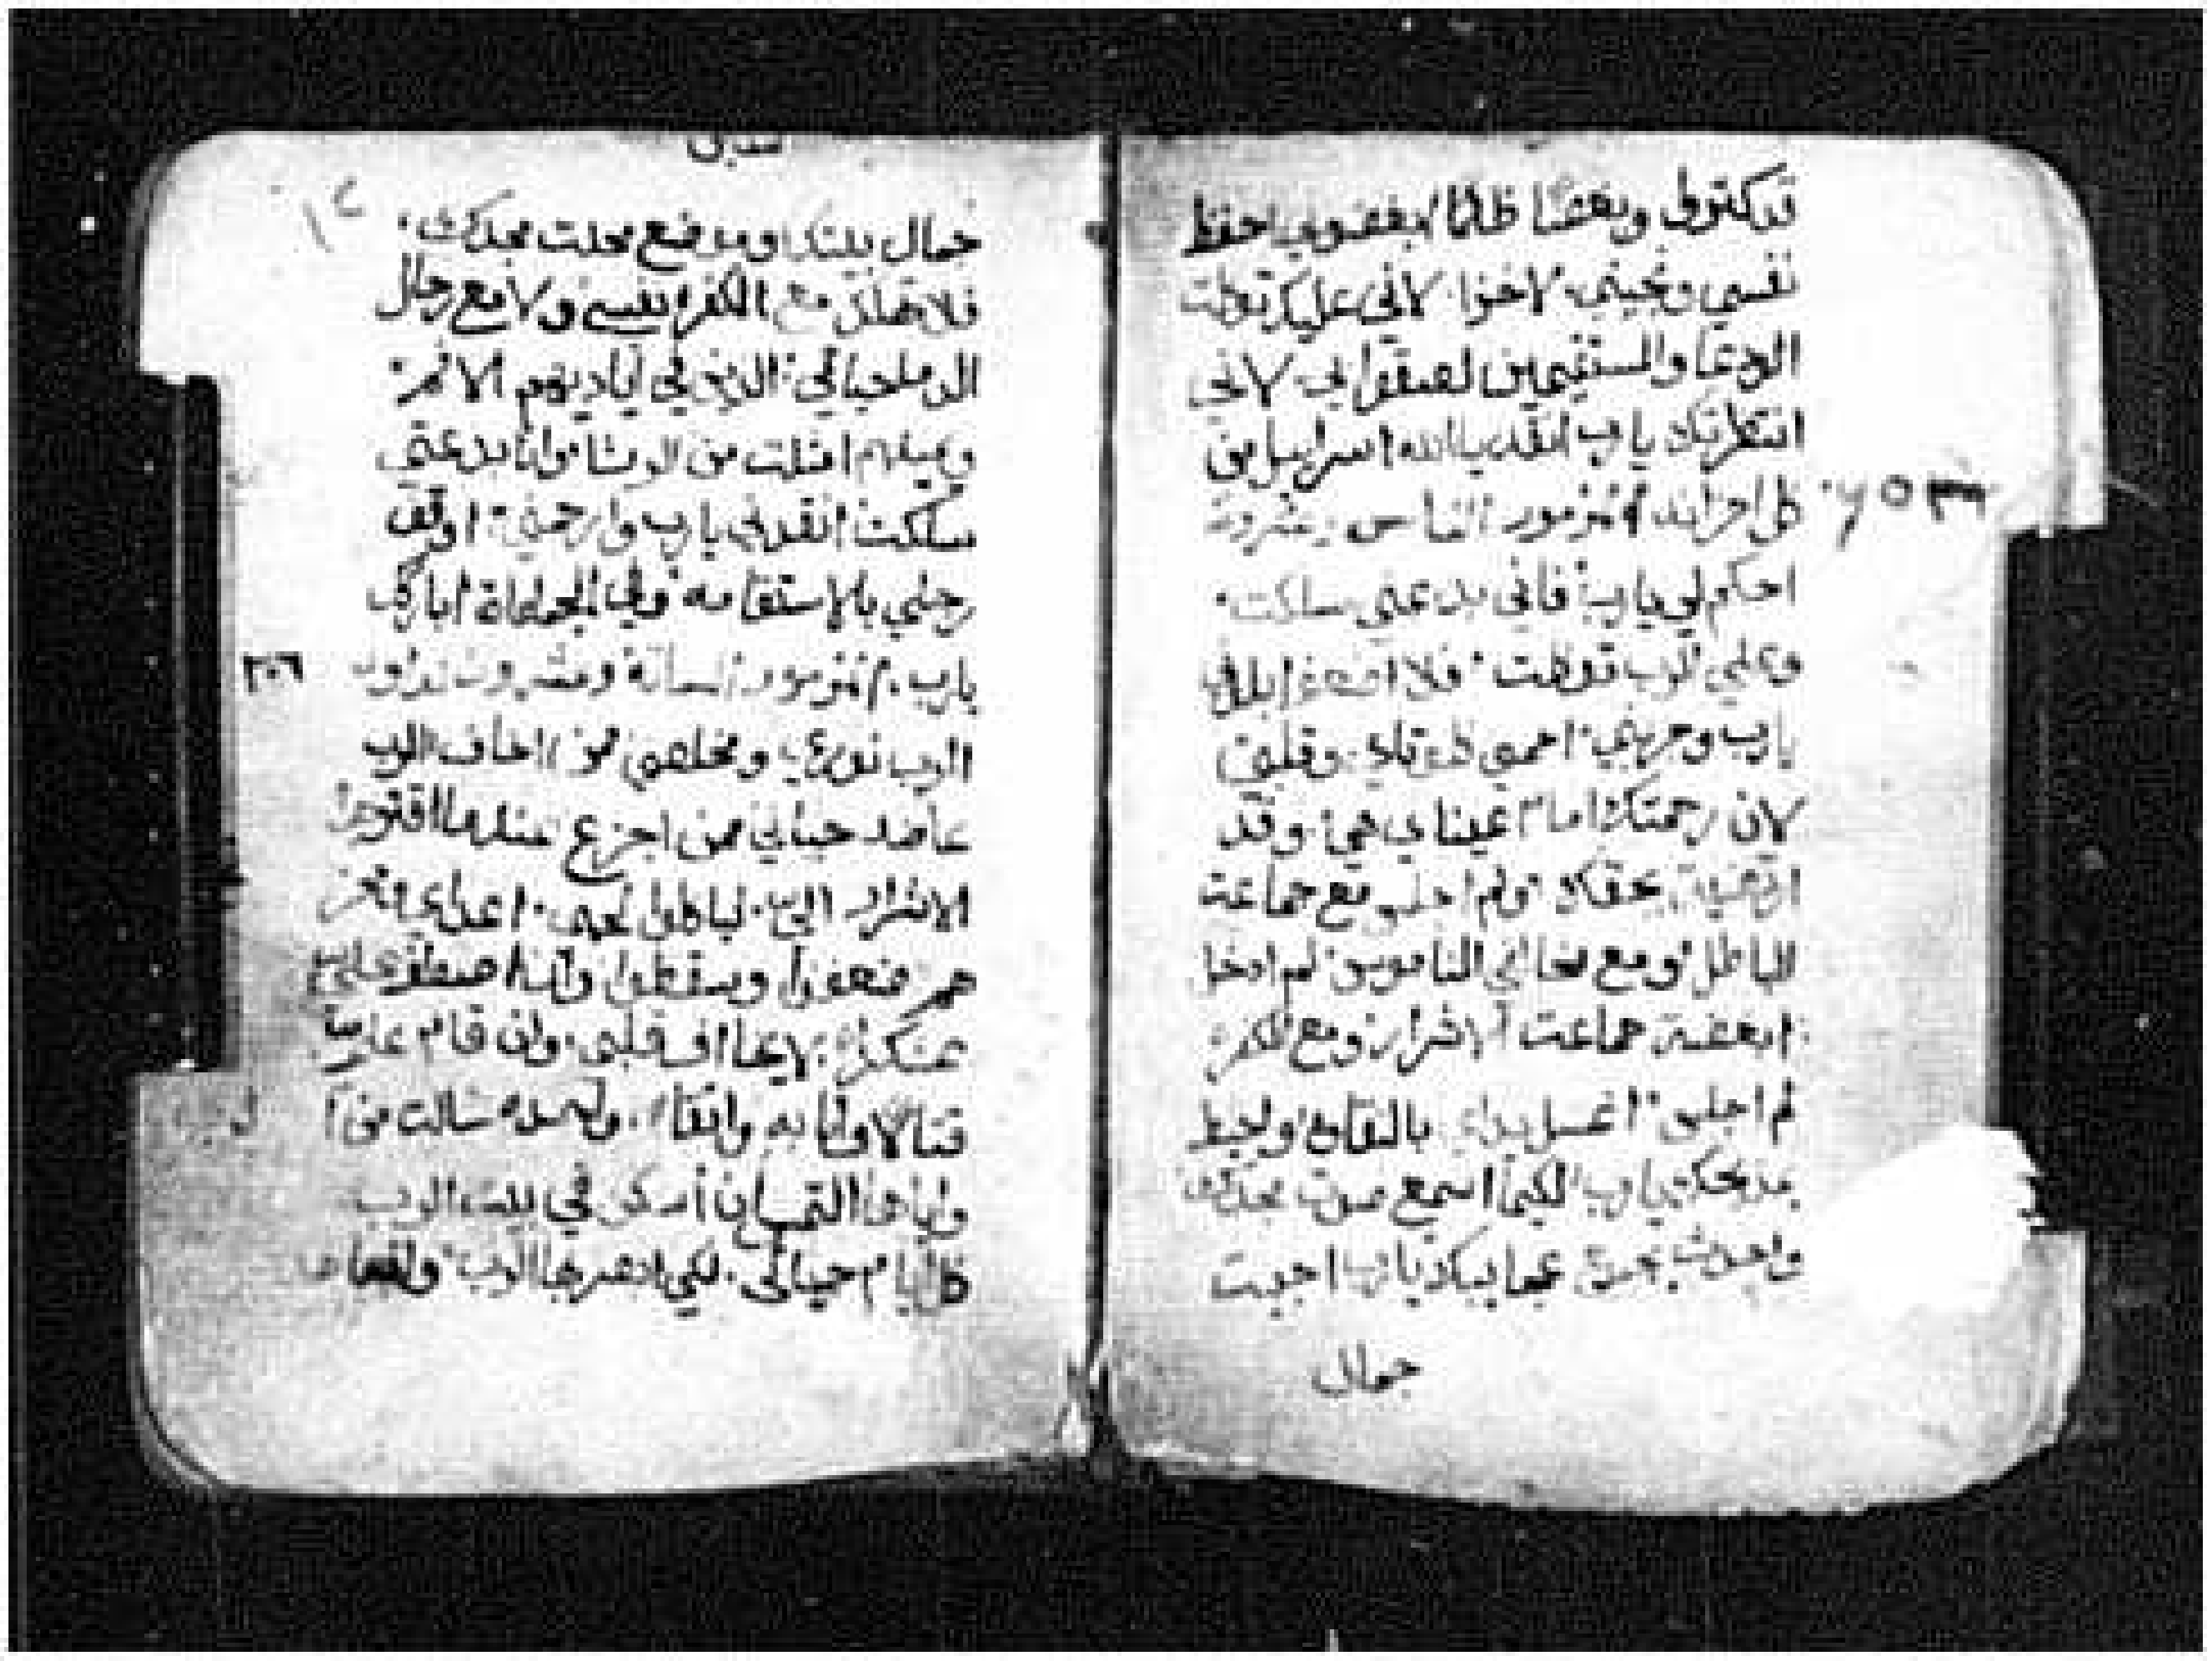 قد كثروا وبغضا ظلما ابغضوني احفظ
نفسي ونجيني لا اخزا لاني عليك توكلت
الودعا والمستقيمين لصقوا بي لاني
انتظرتك يا رب انقذ يا الله اسراييل من
كل احزانه مزمور الخامس وعشرون
٢٥
احكم لي يا رب فاني بدعتي سلكت
وعلى الرب توكلت فلا ابلني
يا رب وجربني احمي كلوتاي وقلبي
لان رحمتك امام عيناي هي وقد
ارتضيت بحقك ولم اجلس مع جماعت
الباطل ومع مخالفي الناموس لم ادخل
ابغضت جماعت الاشرار ومع الكفرة
لم اجلس اغسل يداي بالنقاوة واحيط
بمذبحك يا رب لكيما اسمع صوت مجدك
واحدث بجميع عجايبك يا رب احببت
جمال
جمال بيتك وموضع محلت مجدك
فلا تهلك مع الكفرة نفسي ولا مع رجال
الدما حياتي الذين في اياديهم الاثم
ويمينهم امتلت من الرشا وانا بدعتي
سلكت انقذني يا رب وارحمني اوقفت
رجلي بالاستقامه وفي الجماعات اباركك
يا رب مزمور السادس وعشرون لداود
٢٦
الرب نوري ومخلصي ممن اخاف الرب
عاضد حياتي ممن اجزع عندما اقتربوا
الاشرار الي لياكلوا لحمي اعداي
هم ضعفوا وسقطوا وان اصطف علي
عسكرا لا يخاف قلبي وان قام علي
قتالا وانا به واثقا واحده سالت من
واياها التمس ان اسكن في بيت الرب
كل ايام حياتي لكي ابصر بها الرب